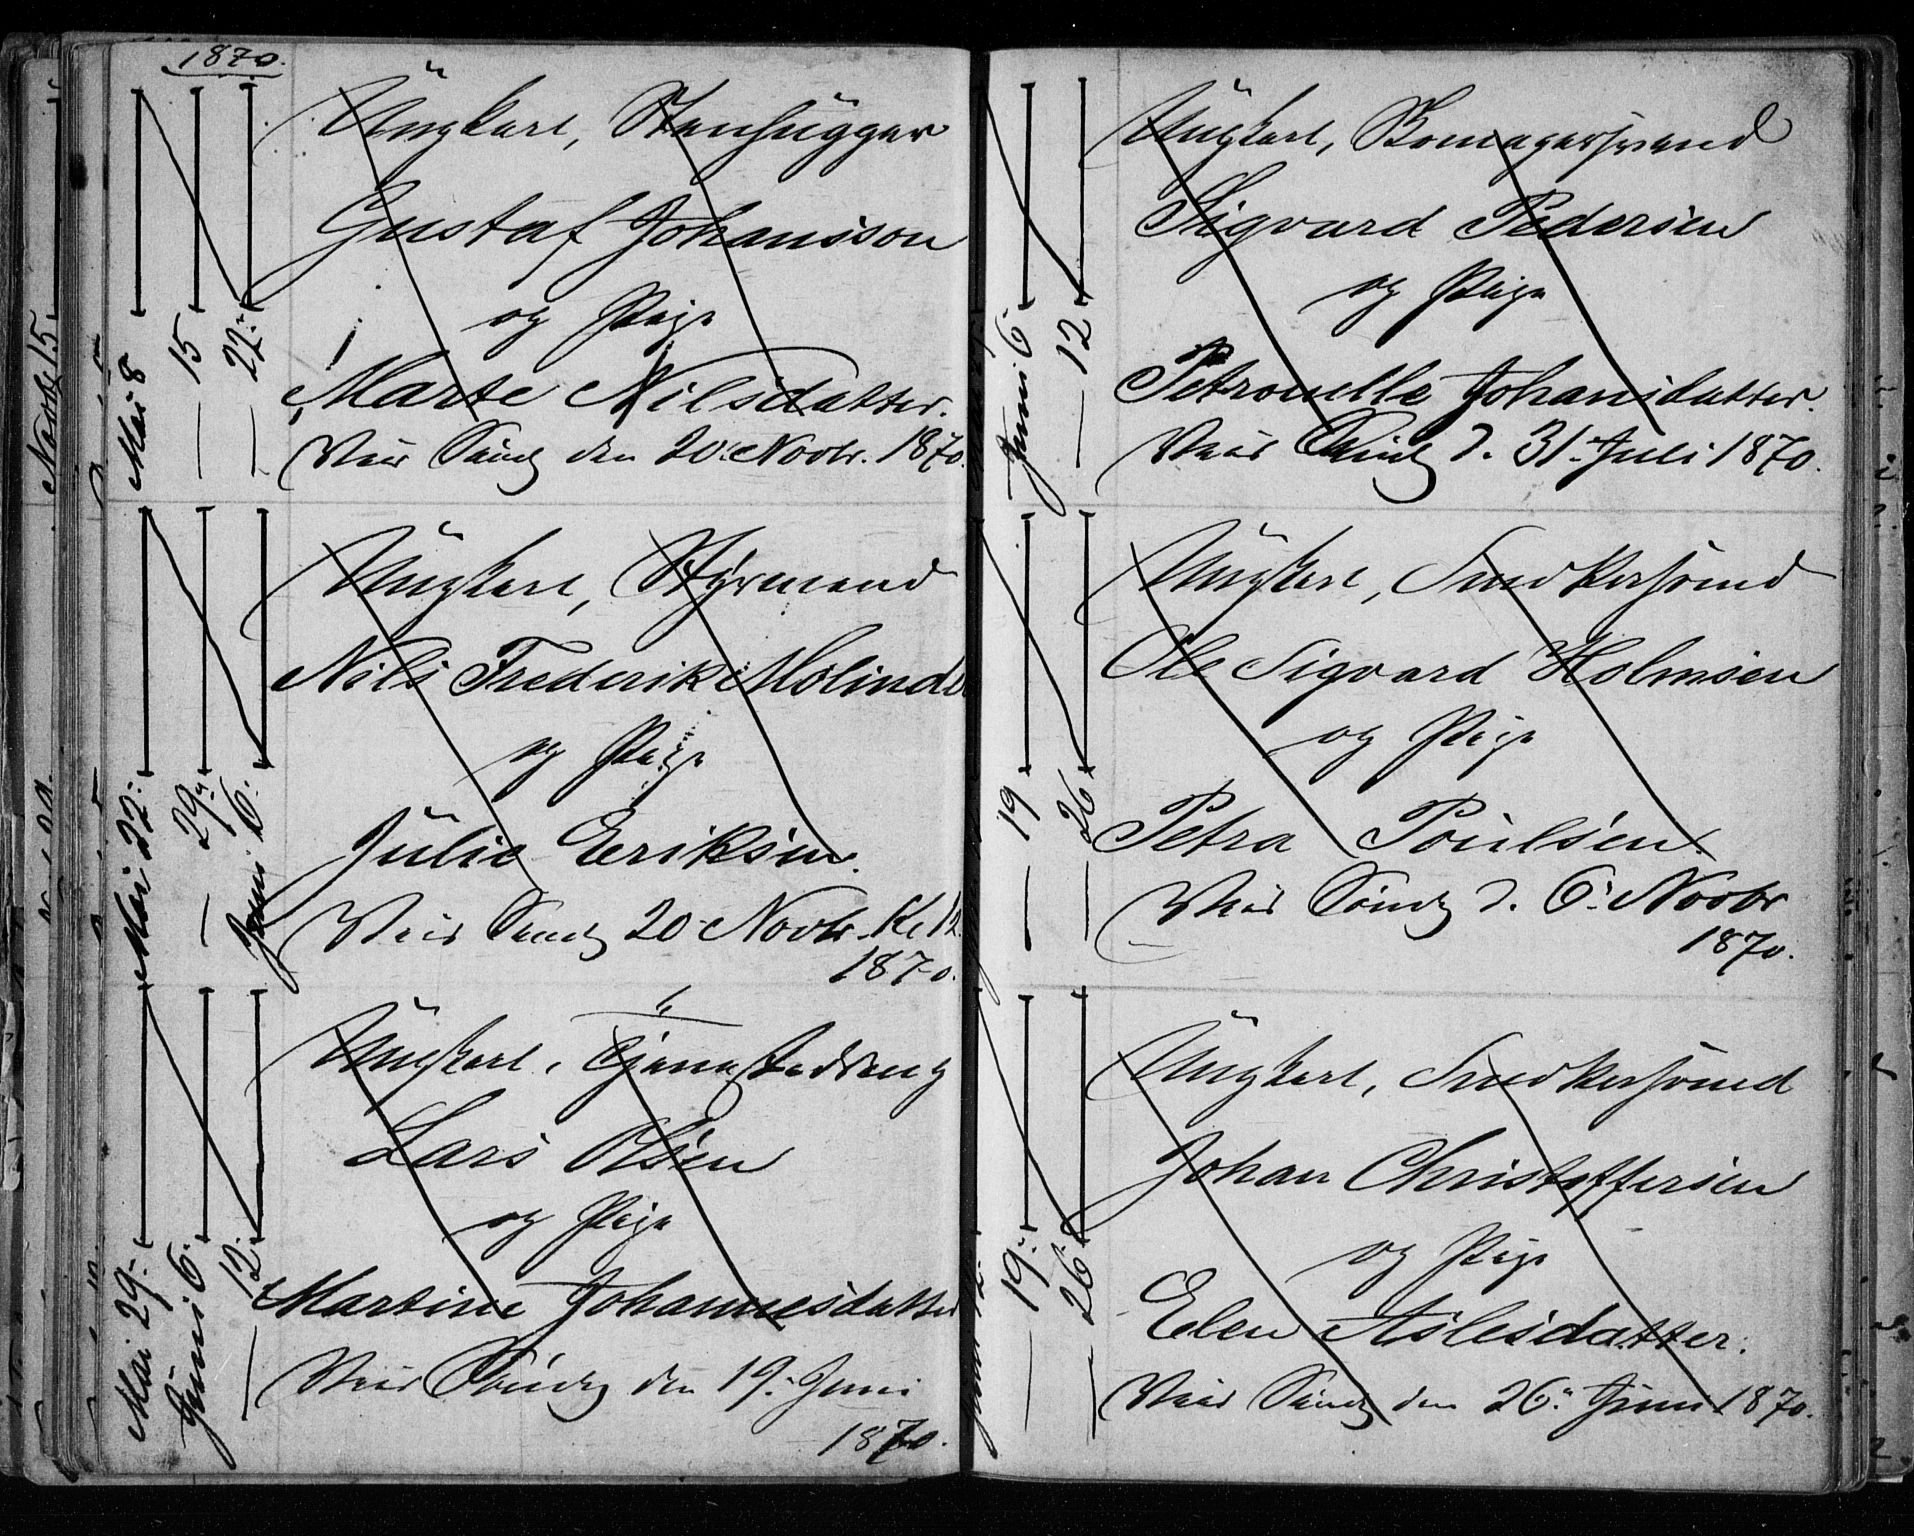 1870.
Mai 8
— 15
— 22.
Ungkarl, Stenhugger
Gustaf Johansson
og Pige
Marte Nilsdatter.
Viet Sönd den 20. Novbr. 1870.
Mai 22.
— 29.
Juni 6.
Ungkarl, Styrmand
Nils Frederik Molinder
og Pige
Julie Eriksen.
Viet Sönd 20 Novbr. Kl. 12
1870.
Mai 29.
Juni 6.
— 12.
Ungkarl,
Lars Olsen
og Pige
Martine Johannesdatter
Viet Sönd den 19. Juni
1870.
Juni 6
— 12
Ungkarl,
Sigvard Pedersen
og Pige
Petronelle Johansdatter.
Viet Sönd d. 31. Juli 1870.
— 19
— 26
Ungkarl, Snedkersvend
Ole Sigvard Holmsen
og Pige
Petra Poulsen.
Viet Sönd d. 6. Novbr
1870.
— 19.
— 26.
Ungkarl, Snedkersvend
Johan Christoffersen
og Pige
Elen Aslesdatter.
Viet Sönd den 26. Juni 1870.